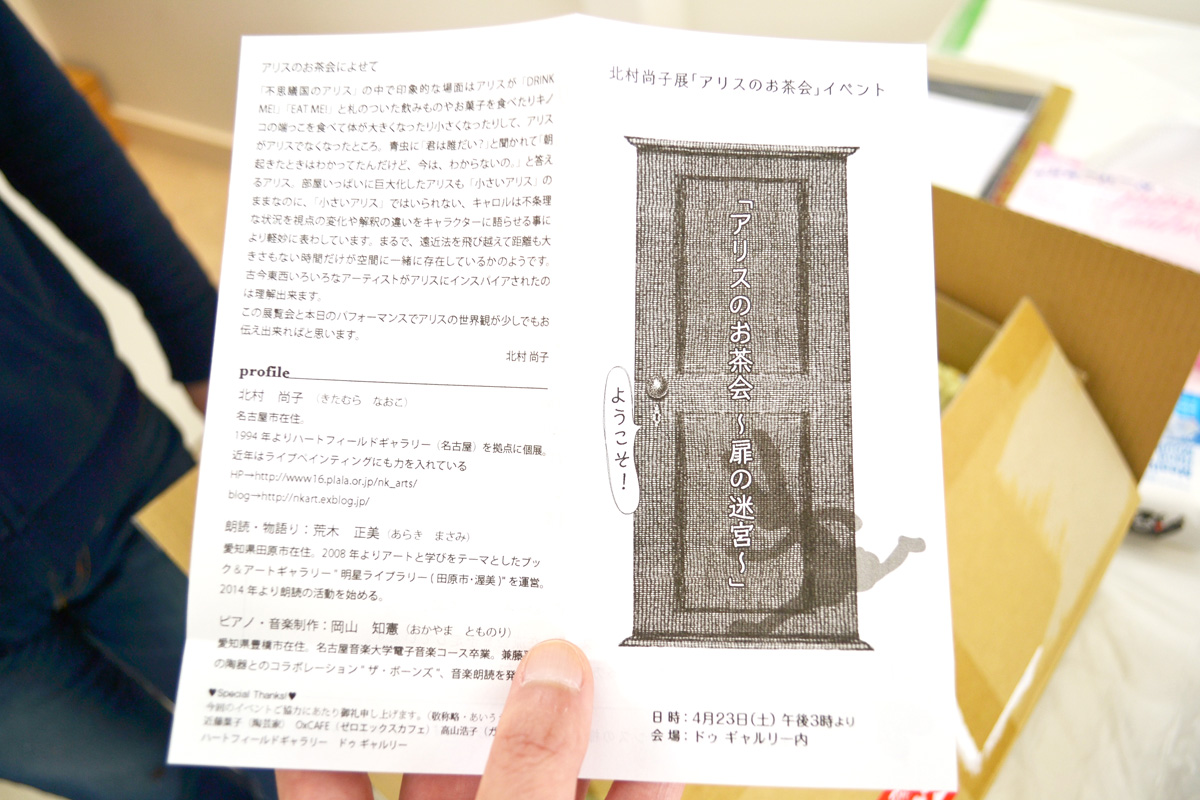 アリスのお茶会によせて
「不思議国のアリス」の中で印象的な場面はアリスが「DRINK
ME!」「EAT ME!」と札のついた飲みものやお菓子を食べたりキノ
コの端っこを食べて体が大きくなったり小さくなったりして、アリス
がアリスでなくなったところ。青虫に「君は誰だい?」と聞かれて「朝
起きたときはわかってたんだけど、今は、わからないの。」と答え
るアリス。部屋いっぱいに巨大化したアリスも「小さいアリス」の
ままなのに、「小さいアリス」ではいられない、キャロルは不条理
な状況を視点の変化や解釈の違いをキャラクターに語らせる事に
より軽妙に表わしています。まるで、遠近法を飛び越えて距離も大
きさもない時間だけが空間に一緒に存在しているかのようです。
古今東西いろいろなアーティストがアリスにインスパイアされたの
は理解出来ます。
この展覧会と本日のパフォーマンスでアリスの世界観が少しでもお
伝え出来ればと思います。
北村 尚子
profile
北村 尚子 (きたむら なおこ)
名古屋市在住。
1994 年よりハートフィールドギャラリー(名古屋)を拠点に個展。
近年はライブペインティングにも力を入れている
HP→http://www16.plala.or.jp/nk_arts/
blog→http://nkart.exblog.jp/
朗読・物語り:荒木 正美(あらき まさみ)
愛知県田原市在住。2008 年よりアートと学びをテーマとしたブッ
ク&アートギャラリー"明星ライブラリー(田原市・渥美)"を運営。
2014 年より朗読の活動を始める。
ピアノ・音楽制作:岡山 知憲(おかやま とものり)
愛知県豊橋市在住。名古屋音楽大学電子音楽コース卒業。兼藤
の陶器とのコラボレーション"ザ・ボーンズ"、音楽朗読を発
♥Special Thanks!♥
今回のイベントご協力にあたり御礼申し上げます。(敬称略・あいう
近藤葉子(陶芸家) OxCAFE(ゼロエックスカフェ) 高山浩子(ガ
ハートフィールドギャラリー ドゥ ギャルリー
北村尚子展「アリスのお茶会」イベント
「アリスのお茶会 〜扉の迷宮〜」
ようこそ!
日時:4月23日(土) 午後3時より
会場:ドゥ ギャルリー内